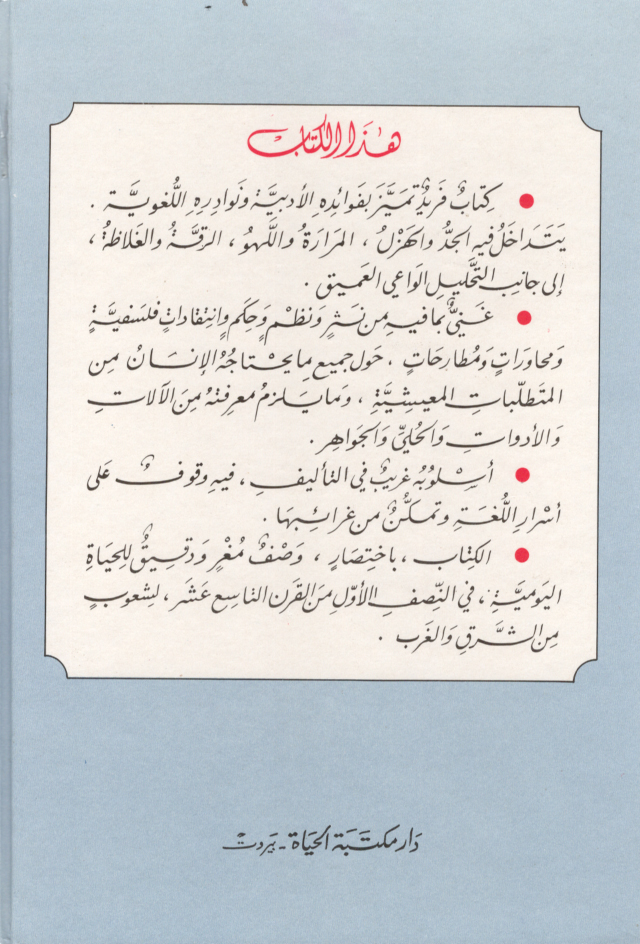 هٰذَا الكِتَاب
● كِتابٌ فَريْدٌ تمَيَّزَ بفَوائِدِهِ الأدبيَّة وَنَوادِرِهِ اللُّغويَّة .
يتَدَاخَلُ فيهِ الجدُّ والهَزْلُ ، المَرَارَةُ واللَّهوُ ، الرقَّةُ والغَلاظةُ ،
إلى جانِبِ التَّحليلِ الوَاعي العَميق .
● غَنيٌّ بمَا فيهِ مِن نَثرٍ وَنظْمٍ وَحِكمٍ وانتِقاداتٍ فلسَفيَّةٍ
وَمحاوَراتٍ وَمُطارحَاتٍ ، حَول جميعِ مايحتاجُهُ الإنسَانُ مِن
المتَطلّباتِ المعيشِيَّةِ ، وَمايَلزمُ مَعرفتهُ مِنَ الآلاتِ
وَالأدواتِ وَالحُليِّ وَالجَواهِر .
● أسلوبُهُ غريبٌ في التأليفِ ، فيهِ وقوفٌ عَلى
أسْرارِ اللُّغَةِ وَتمكّنٌ من غرائبِهَا .
● الكِتاب ، باختِصَارٍ ، وَصْفٌ مُغرٍ وَدقيقٌ لِلحيَاةِ
اليَوميَّةِ ، في النِّصفِ الأوّلِ مِنَ القَرن التاسِع عَشَر ، لشعوبٍ
مِن الشَّرقِ وَالغَرب .
دَار مكتَبَة الحَيَاة - بَيروت